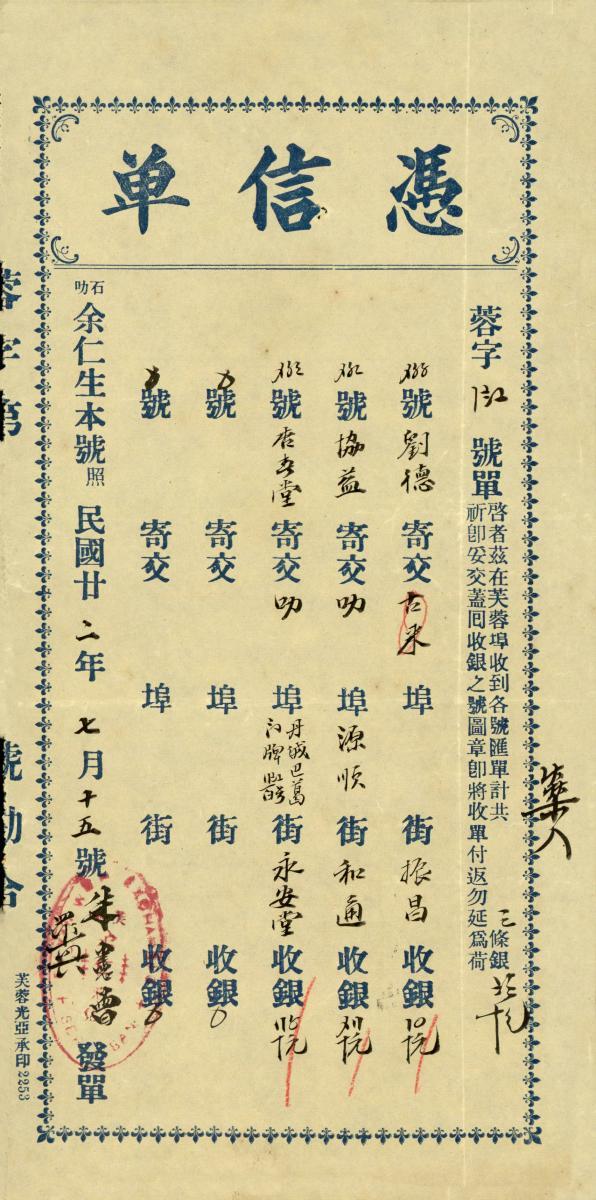 憑信单
蓉字 號單
啓者茲在芙蓉埠收到各號匯單計共三條銀
祈卽妥交蓋囘收銀之號圖章卽將收單付返勿延爲荷
號劉德寄交古來埠 街振昌收銀
號協益寄交叻埠源順街和通收銀
號杏春堂寄交叻埠丹絨巴葛 街永安堂收銀
號 寄交 埠 街 收銀
號 寄交 埠 街 收銀
石叻余仁生本號照 民國廿二年七月十五號 發單
芙蓉光亞承印2253
蓉字第 號勘合